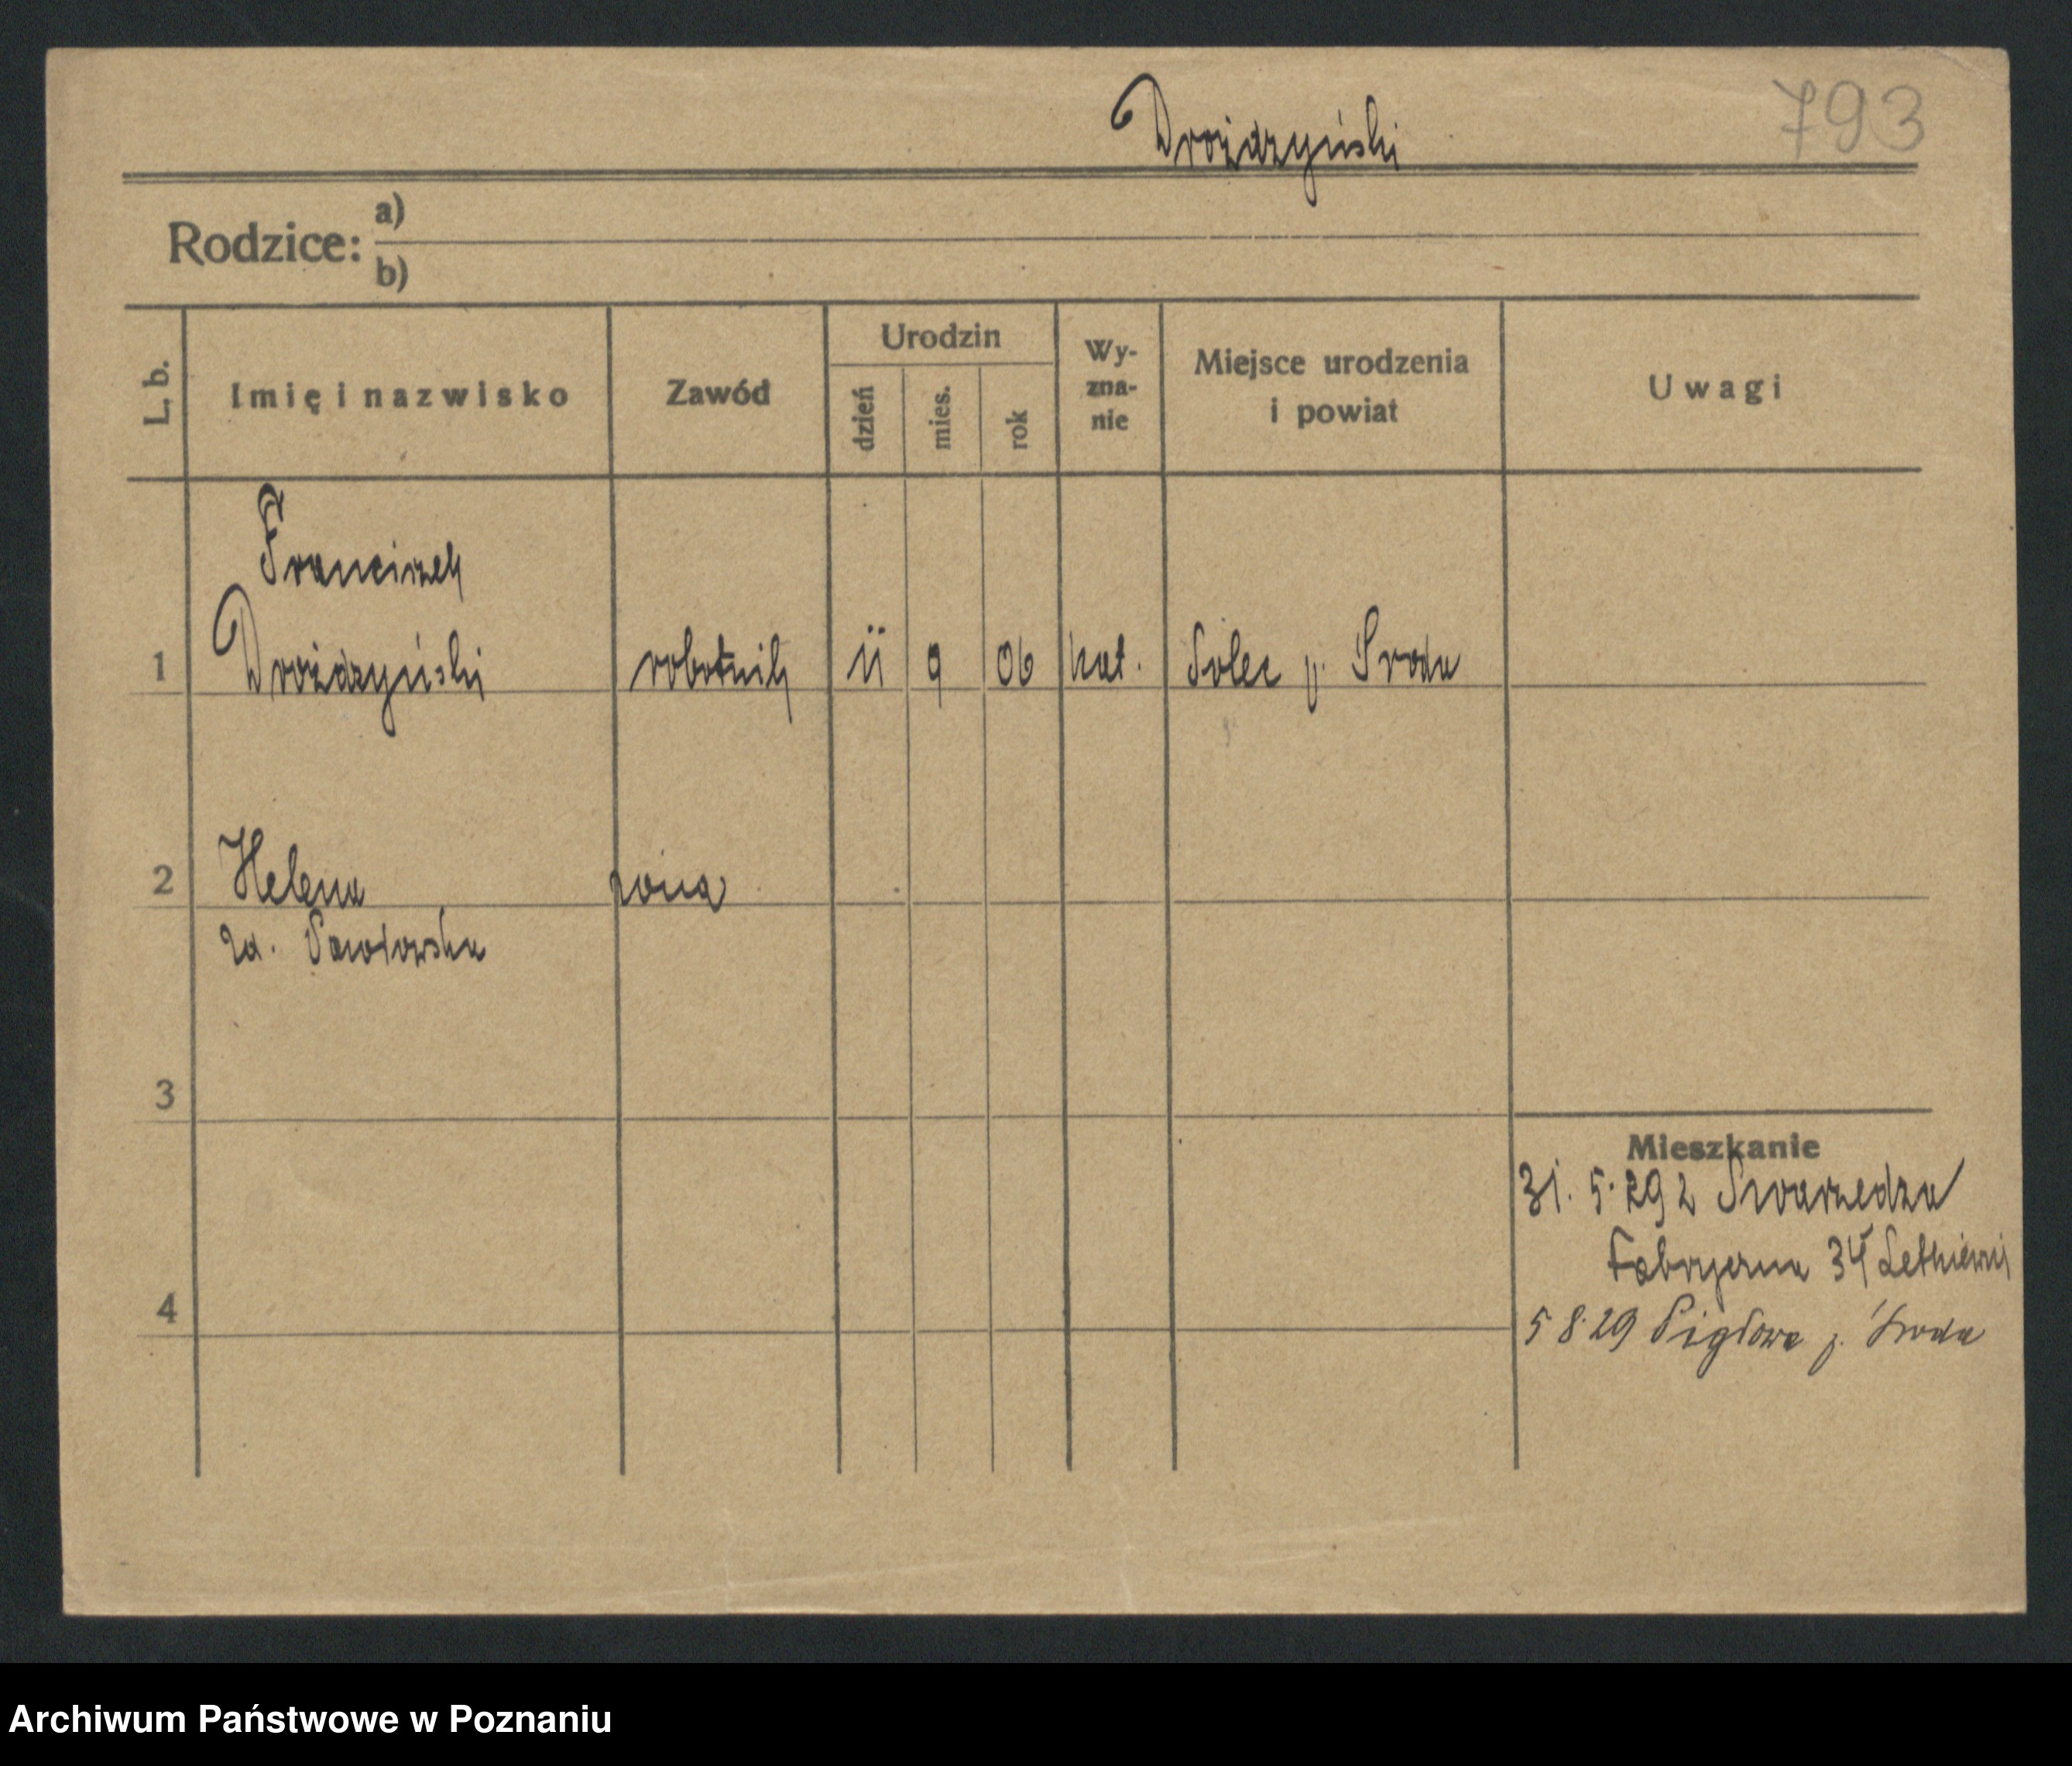 Drożdzyński
793
Rodzice: a)
b)
L. b.
Imię i nazwisko
Zawód
Urodzin
dzień
mies.
rok
Wy-
zna-
nie
Miejsce urodzenia
i powiat
Uwagi
Franciszek
1 Drożdzyński robotnik 11 9 06 kat. Solec p. Sroda
2 Helena żona
zd. Pawłowska
3
4
Mieszkanie
31. 5. 29 z Swarzedza
Fabryczna 34
5 8 29 Pigłowo p. Środa
Archiwum Państwowe w Poznaniu